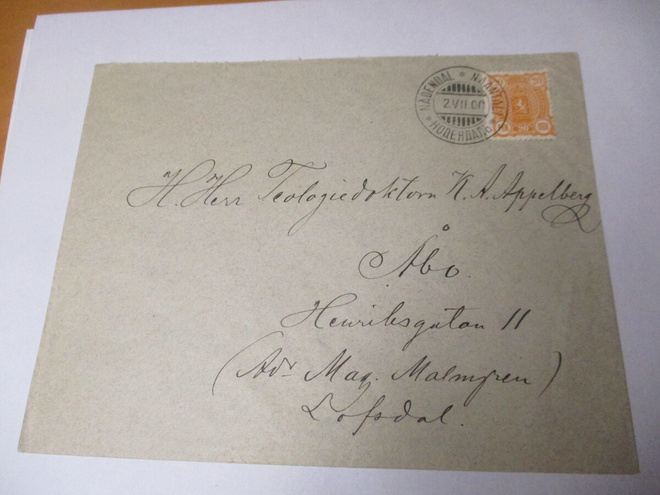 NÅDENDAL * NAANTALI
2.VII.00
* НОДЕНДАЛЬ *
H. Herr Teologiedoktorn K. A. Appelberg
Åbo.
Henriksgatan 11
(Adr Mag. Malmgren)
Lofsdal.